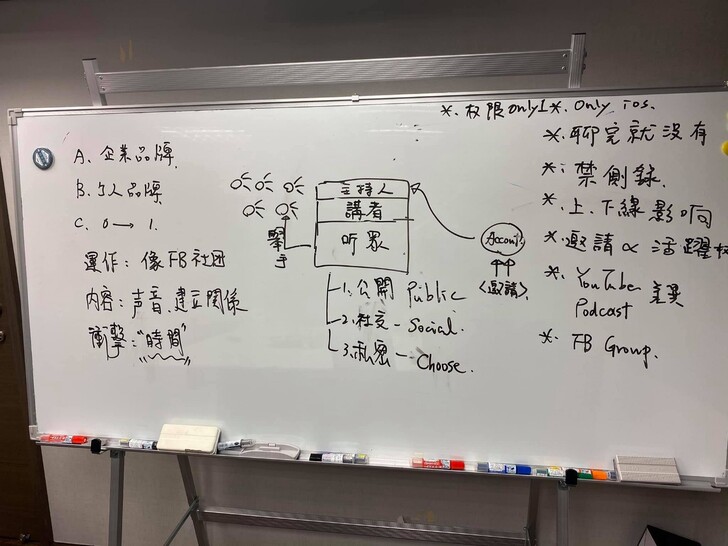 A、企業品牌
B、个人品牌
C、0→1.
運作：像FB社团
内容：声音、建立關係
衝擊："時間"
主持人
講者
听眾
舉手
1.公開 Public
2.社交－Social.
3.私密－Choose.
Account
<邀請>
*、权限only1
*、Only ios.
*、聊完就没有
*、禁側錄
*、上、下線影响
*、邀請∝活躍
*、YouTuber
Podcast
差異
*、FB Group.